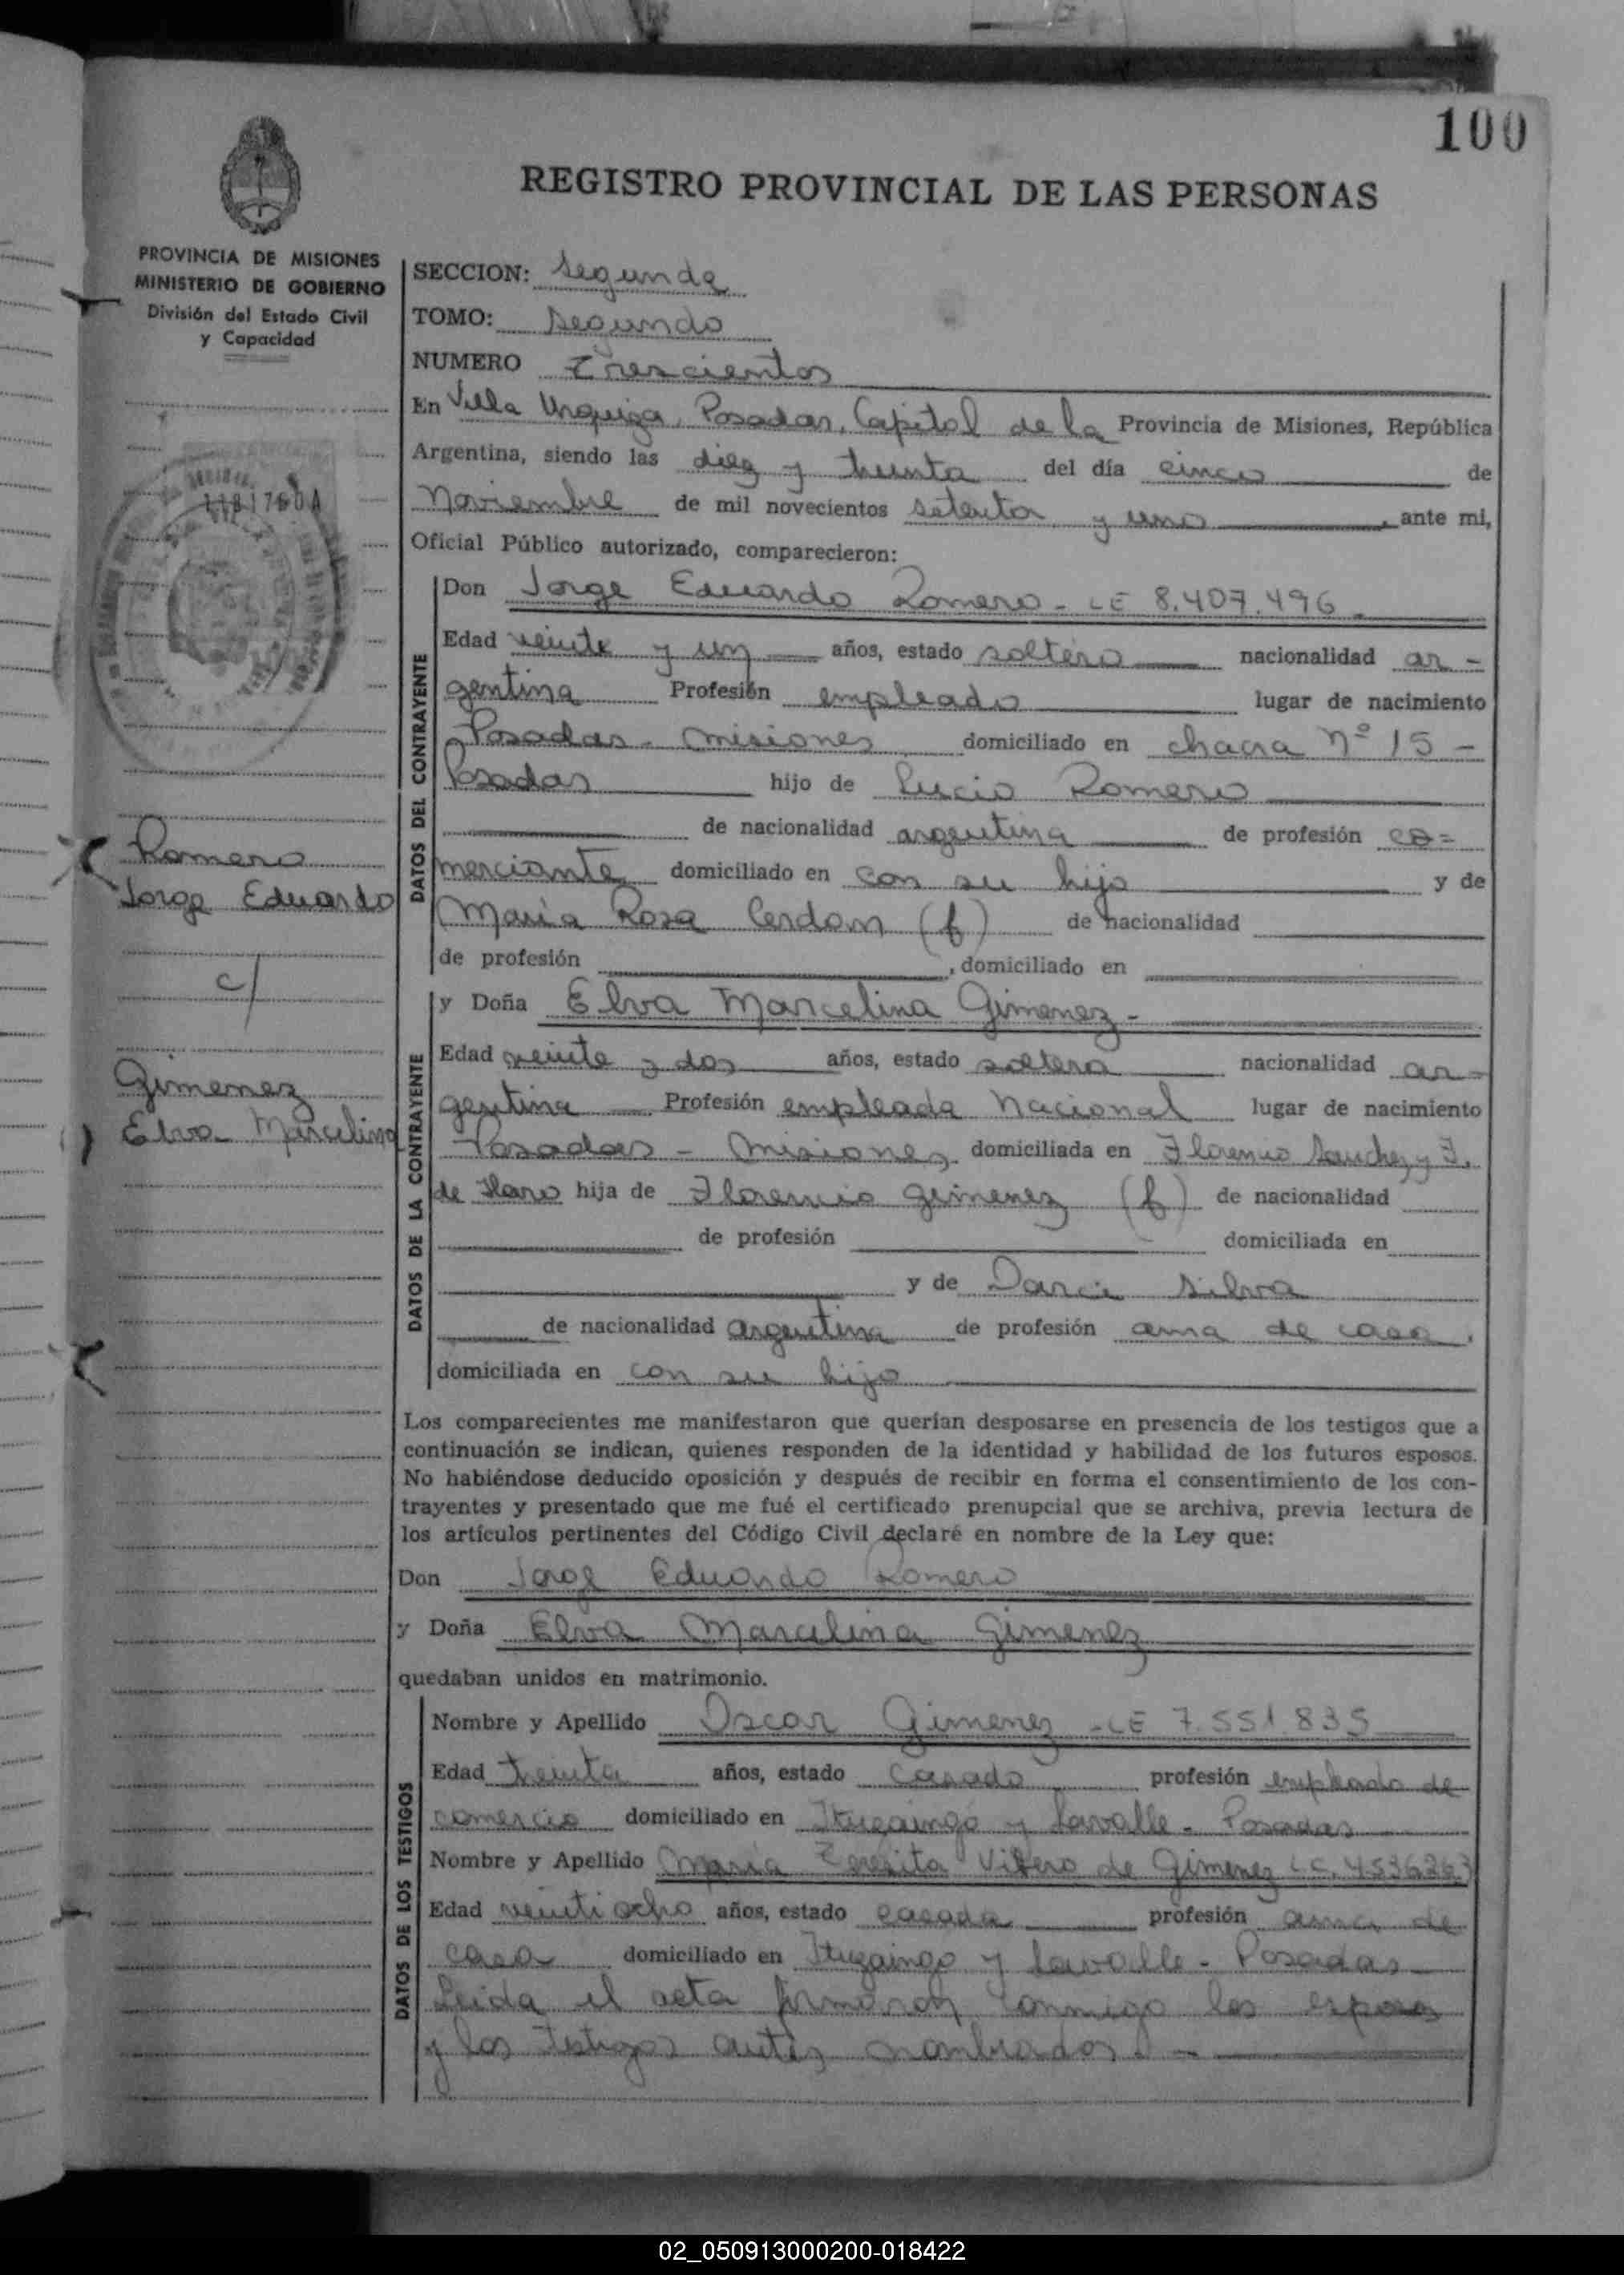 100
REGISTRO PROVINCIAL DE LAS PERSONAS
PROVINCIA DE MISIONES
MINISTERIO DE GOBIERNO
División del Estado Civil
y Capacidad
SECCION: Segunda
TOMO: Segundo
NUMERO Trescientos
En Villa Urquiza, Posadas, Capital de la Provincia de Misiones, República
Argentina, siendo las diez y treinta del día cinco de
Noviembre de mil novecientos setenta y uno, ante mi,
Oficial Público autorizado, comparecieron:
DATOS DEL CONTRAYENTE
Don Jorge Eduardo Romero - LE 8.407.496
Edad veinte y un años, estado soltero nacionalidad ar-
gentina Profesión empleado lugar de nacimiento
Posadas - Misiones domiciliado en chacra Nº 15 -
Posadas hijo de Lucio Romero
de nacionalidad argentina de profesión co=
merciante domiciliado en con su hijo y de
Maria Rosa Cerdan (f) de nacionalidad
de profesión , domiciliado en
Romero
Jorge Eduardo
c/
Gimenez
Elva Marcelina
DATOS DE LA CONTRAYENTE
y Doña Elva Marcelina Gimenez -
Edad veinte y dos años, estado soltera nacionalidad ar-
gentina Profesión empleada Nacional lugar de nacimiento
Posadas - Misiones domiciliada en Florencio Sanchez y F.
de Haro hija de Florencio Gimenez (f) de nacionalidad
de profesión domiciliada en
y de Darci Silva
de nacionalidad argentina de profesión ama de casa,
domiciliada en con su hijo
Los comparecientes me manifestaron que querían desposarse en presencia de los testigos que a
continuación se indican, quienes responden de la identidad y habilidad de los futuros esposos.
No habiéndose deducido oposición y después de recibir en forma el consentimiento de los con-
trayentes y presentado que me fué el certificado prenupcial que se archiva, previa lectura de
los artículos pertinentes del Código Civil declaré en nombre de la Ley que:
Don Jorge Eduardo Romero
y Doña Elva Marcelina Gimenez
quedaban unidos en matrimonio.
DATOS DE LOS TESTIGOS
Nombre y Apellido Oscar Gimenez - LE 7.551.835
Edad treinta años, estado casado profesión empleado de
comercio domiciliado en Ituzaingó y Lavalle - Posadas
Nombre y Apellido Maria Teresita Vifero de Gimenez L.C. 4536363
Edad veintiocho años, estado casada profesión ama de
casa domiciliado en Ituzaingo y Lavalle - Posadas
Leida el acta firmaron conmigo los esposos
y los testigos antes nombrados. -
02_050913000200-018422